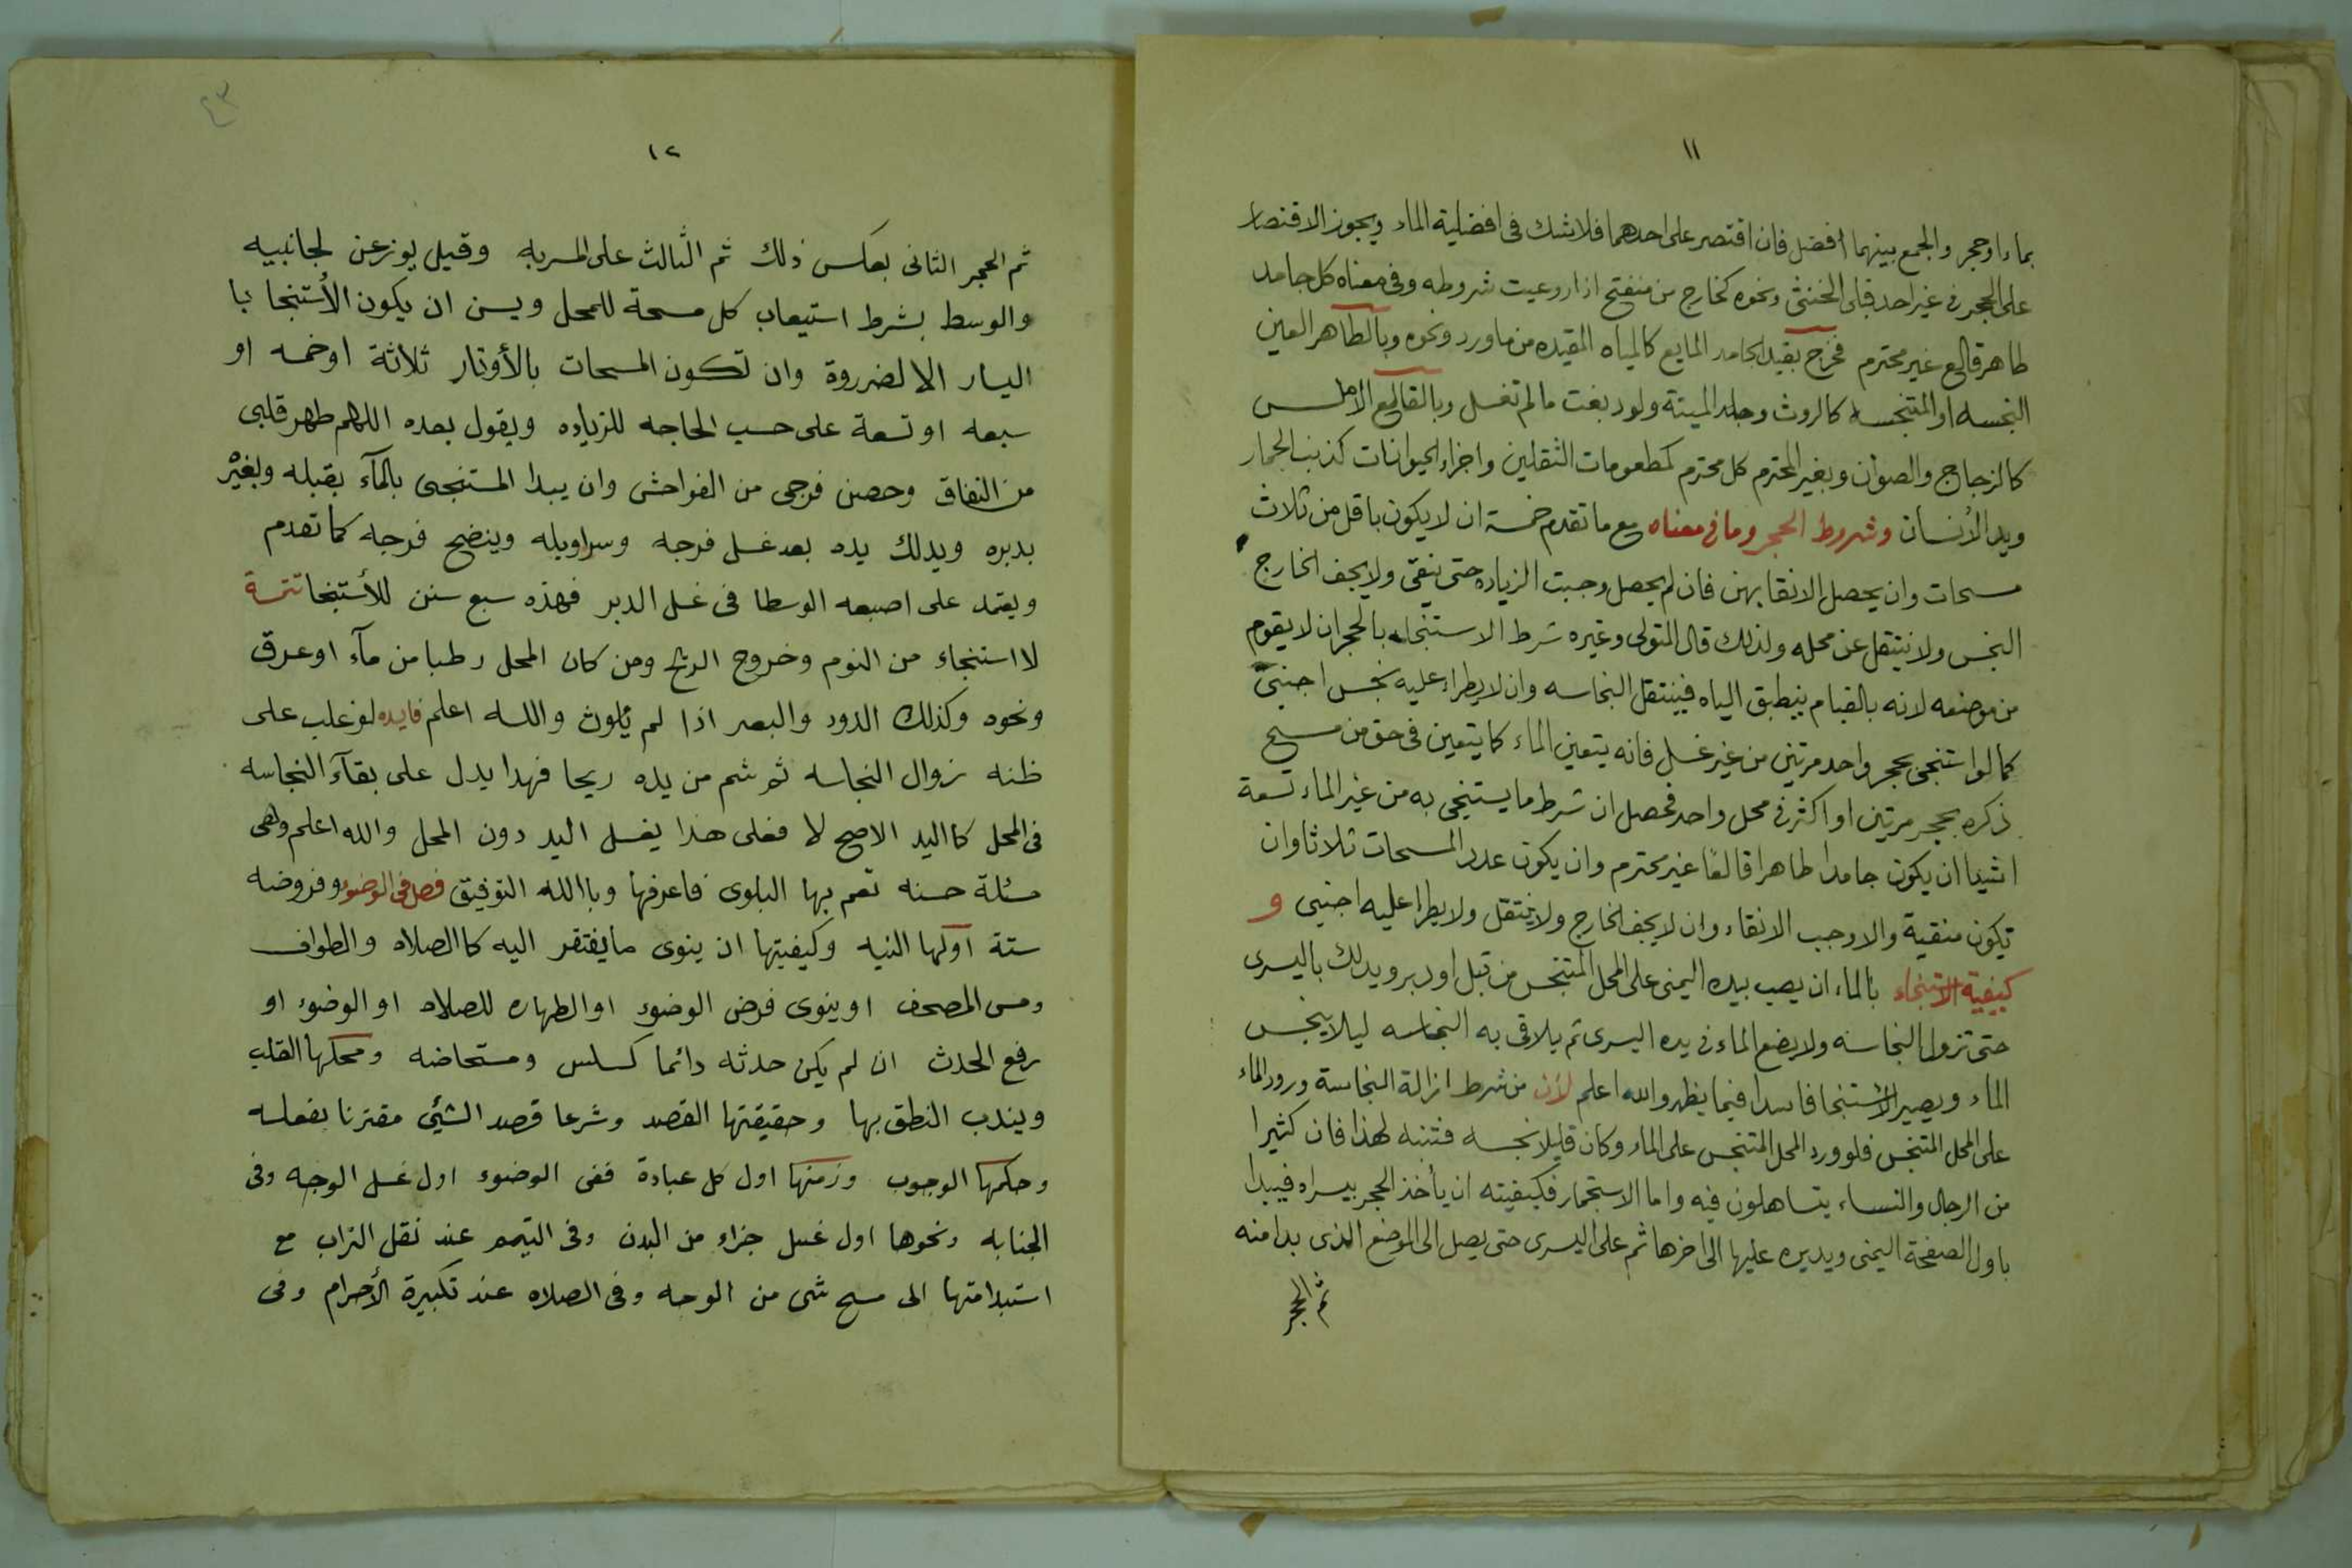 ١١
بماء او حجر والجمع بينهما افضل فان اقتصر على احدهما فلا شك فى افضلية الماء ويجوز الاقتصار
على الحجر فى غير احد قبلى الخنثى ونحوه كخارج من منفتح اذا روعيت شروطه وفى معناه كل جامد
طاهر قالع غير محترم فخرج بقيد الجامد المايع كالمياه المقيده من ماورد ونحوه وبالطاهر العين
النجسه او المتنجسه كالروث وجلد الميتة ولو دبغت ما لم تغسل وبالقالع الاملس
كالزجاج والصوان وبغير المحترم كل محترم كمطعومات الثقلين واجزاء الحيوانات كذنب الحمار
ويد الأنسان وشروط الحجر وما فى معناه مع ما تقدم خمسة ان لا يكون باقل من ثلاث
مسحات وان يحصل الانقا بهن فان لم يحصل وجبت الزياده حتى ينقى ولا يجف الخارج
النجس ولا ينتقل عن محله ولذلك قال المتولى وغيره شرط الاستنجاء بالحجر ان لا يقوم
من موضعه لانه بالقيام ينطبق الياه فينتقل النجاسه وان لا يطراء عليه نجس اجنبيّ
كما لو استنجى بحجر واحد مرتين من غير غسل فانه يتعين الماء كما يتعين فى حق من مسح
ذكره بحجر مرتين او اكثر فى محل واحد فحصل ان شرط ما يستنجى به من غير الماء تسعة
اشيا ان يكون جامدا طاهرا قالعًا غير محترم وان يكون عدد المسحات ثلاثا وان
تكون منقية والا وجب الانقاء وان لا يجف الخارج ولا ينتقل ولا يطرا عليه اجنبى و
كيفية الاستنجاء بالماء ان يصب بيده اليمنى على المحل المتنجس من قبل او دبر ويدلك باليسرى
حتى تزول النجاسة ولا يضع الماء فى يده اليسرى ثم يلاقى به النجاسه ليلا ينجس
الماء ويصير الأستنجا فاسدا فيما يظهر والله اعلم لأن من شرط ازالة النجاسة ورود الماء
على المحل المتنجس فلو ورد المحل المتنجس على الماء وكان قليلا نجسه فتنبه لهذا فان كثيرا
من الرجال والنساء يتساهلون فيه واما الاستجمار فكيفيته ان يأخذ الحجر بيسراه فيبدا
باول الصفحة اليمنى ويديره عليها الى اخرها ثم على اليسرى حتى يصل الى الموضع الذى بدا منه
ثم الحجر
٢٣
١٢
ثم الحجر الثانى بعكس ذلك ثم الثالث على المسربه وقيل يوزعن لجانبيه
والوسط بشرط استيعاب كل مسحة للمحل ويسن ان يكون الأستنجا با
اليسار الا لضرروة وان تكون المسحات بالأوتار ثلاثة او خمسه او
سبعه او تسعة على حسب الحاجه للزياده ويقول بعده اللهم طهر قلبى
من النفاق وحصن فرجى من الفواحش وان يبدا المستنجى بالمآء بقبله وبغيْر
بدبره ويدلك يده بعد غسل فرجه وسراويله وينضح فرجه كما تقدم
ويعتمد على اصبعه الوسطا فى غسل الدبر فهذه سبع سنن للأستنجا تتمة
لا استنجاء من النوم وخروج الريح ومن كان المحل رطبا من مآء او عرق
ونحوه وكذلك الدود والبعر اذا لم يُلوث والله اعلم فايده لو غلب على
ظنه زوال النجاسه ثم شم من يده ريحا فهدا يدل على بقآء النجاسه
فى المحل كا اليد الاصح لا فعلى هذا يغسل اليد دون المحل والله اعلم وهى
مسئلة حسنه تعم بها البلوى فاعرفها وبا الله التوفيق فصل فى الوضوء وفروضه
ستة اولها النيه وكيفيتها ان ينوى ما يفتقر اليه كا الصلاه والطواف
ومس المصحف او ينوى فرض الوضوء او الطهاره للصلاه او الوضوء او
رفع الحدث ان لم يكن حدثه دائما كسلس ومستحاضه ومحلها القلب
ويندب النطق بها وحقيقتها القصد وشرعا قصد الشيئ مقترنا بفعله
وحكمها الوجوب وزمنها اول كل عبادة ففى الوضوء اول غسل الوجه وفى
الجنابه ونحوها اول غسل جزاء من البدن وفى التيمم عند نقل التراب مع
استدامتها الى مسح شى من الوجه وفى الصلاه عند تكبيرة الأحرام وفى